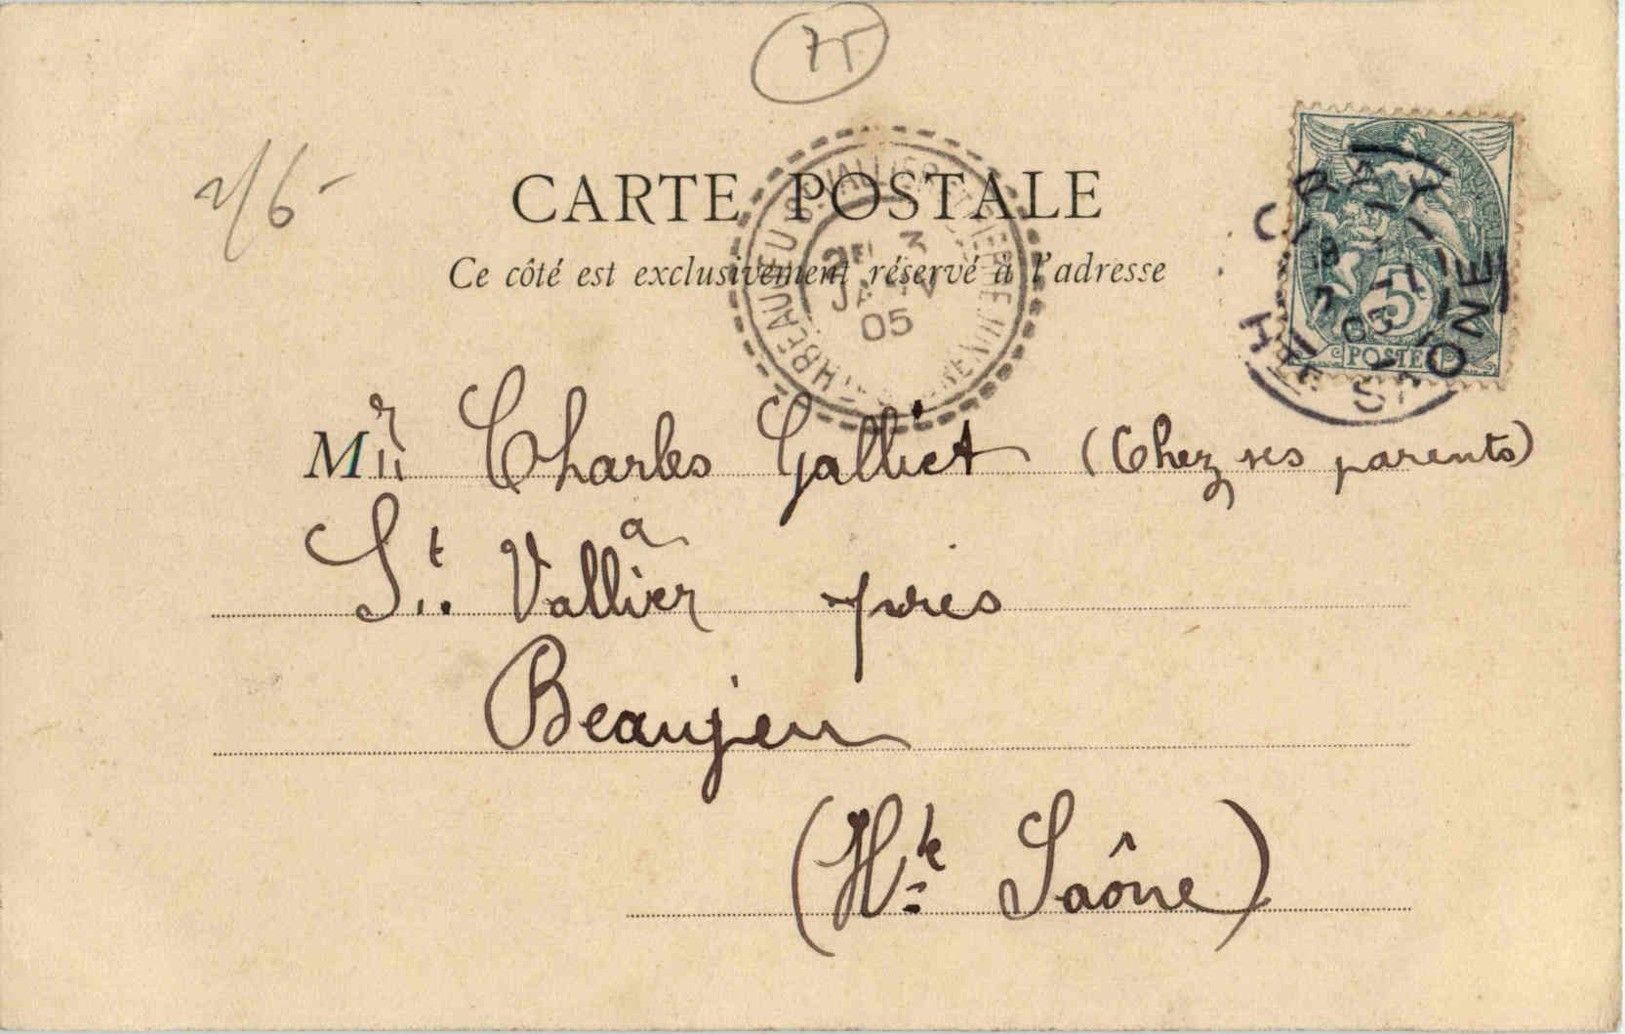 75
2/6-
CARTE POSTALE
Ce côté est exclusivement réservé à l'adresse
3
JANV
05
GRAY
HTE SAONE
5
POSTES
Mr Charles Galliet (Chez ses parents)
à
St. Vallier près
Beaujeu
(Hte Saône)